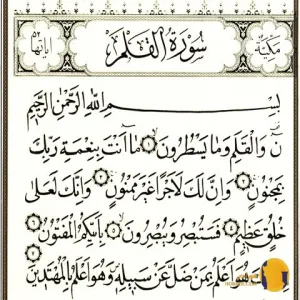 مكية سورة القلم آياتها ٥٢
بسم الله الرحمن الرحيم
ن والقلم وما يسطرون ١ ما أنت بنعمة ربك
بمجنون ٢ وإن لك لأجرا غير ممنون ٣ وإنك لعلى
خلق عظيم ٤ فستبصر ويبصرون ٥ بأييكم المفتون ٦
هو أعلم بمن ضل عن سبيله وهو أعلم بالمهتدين ٧